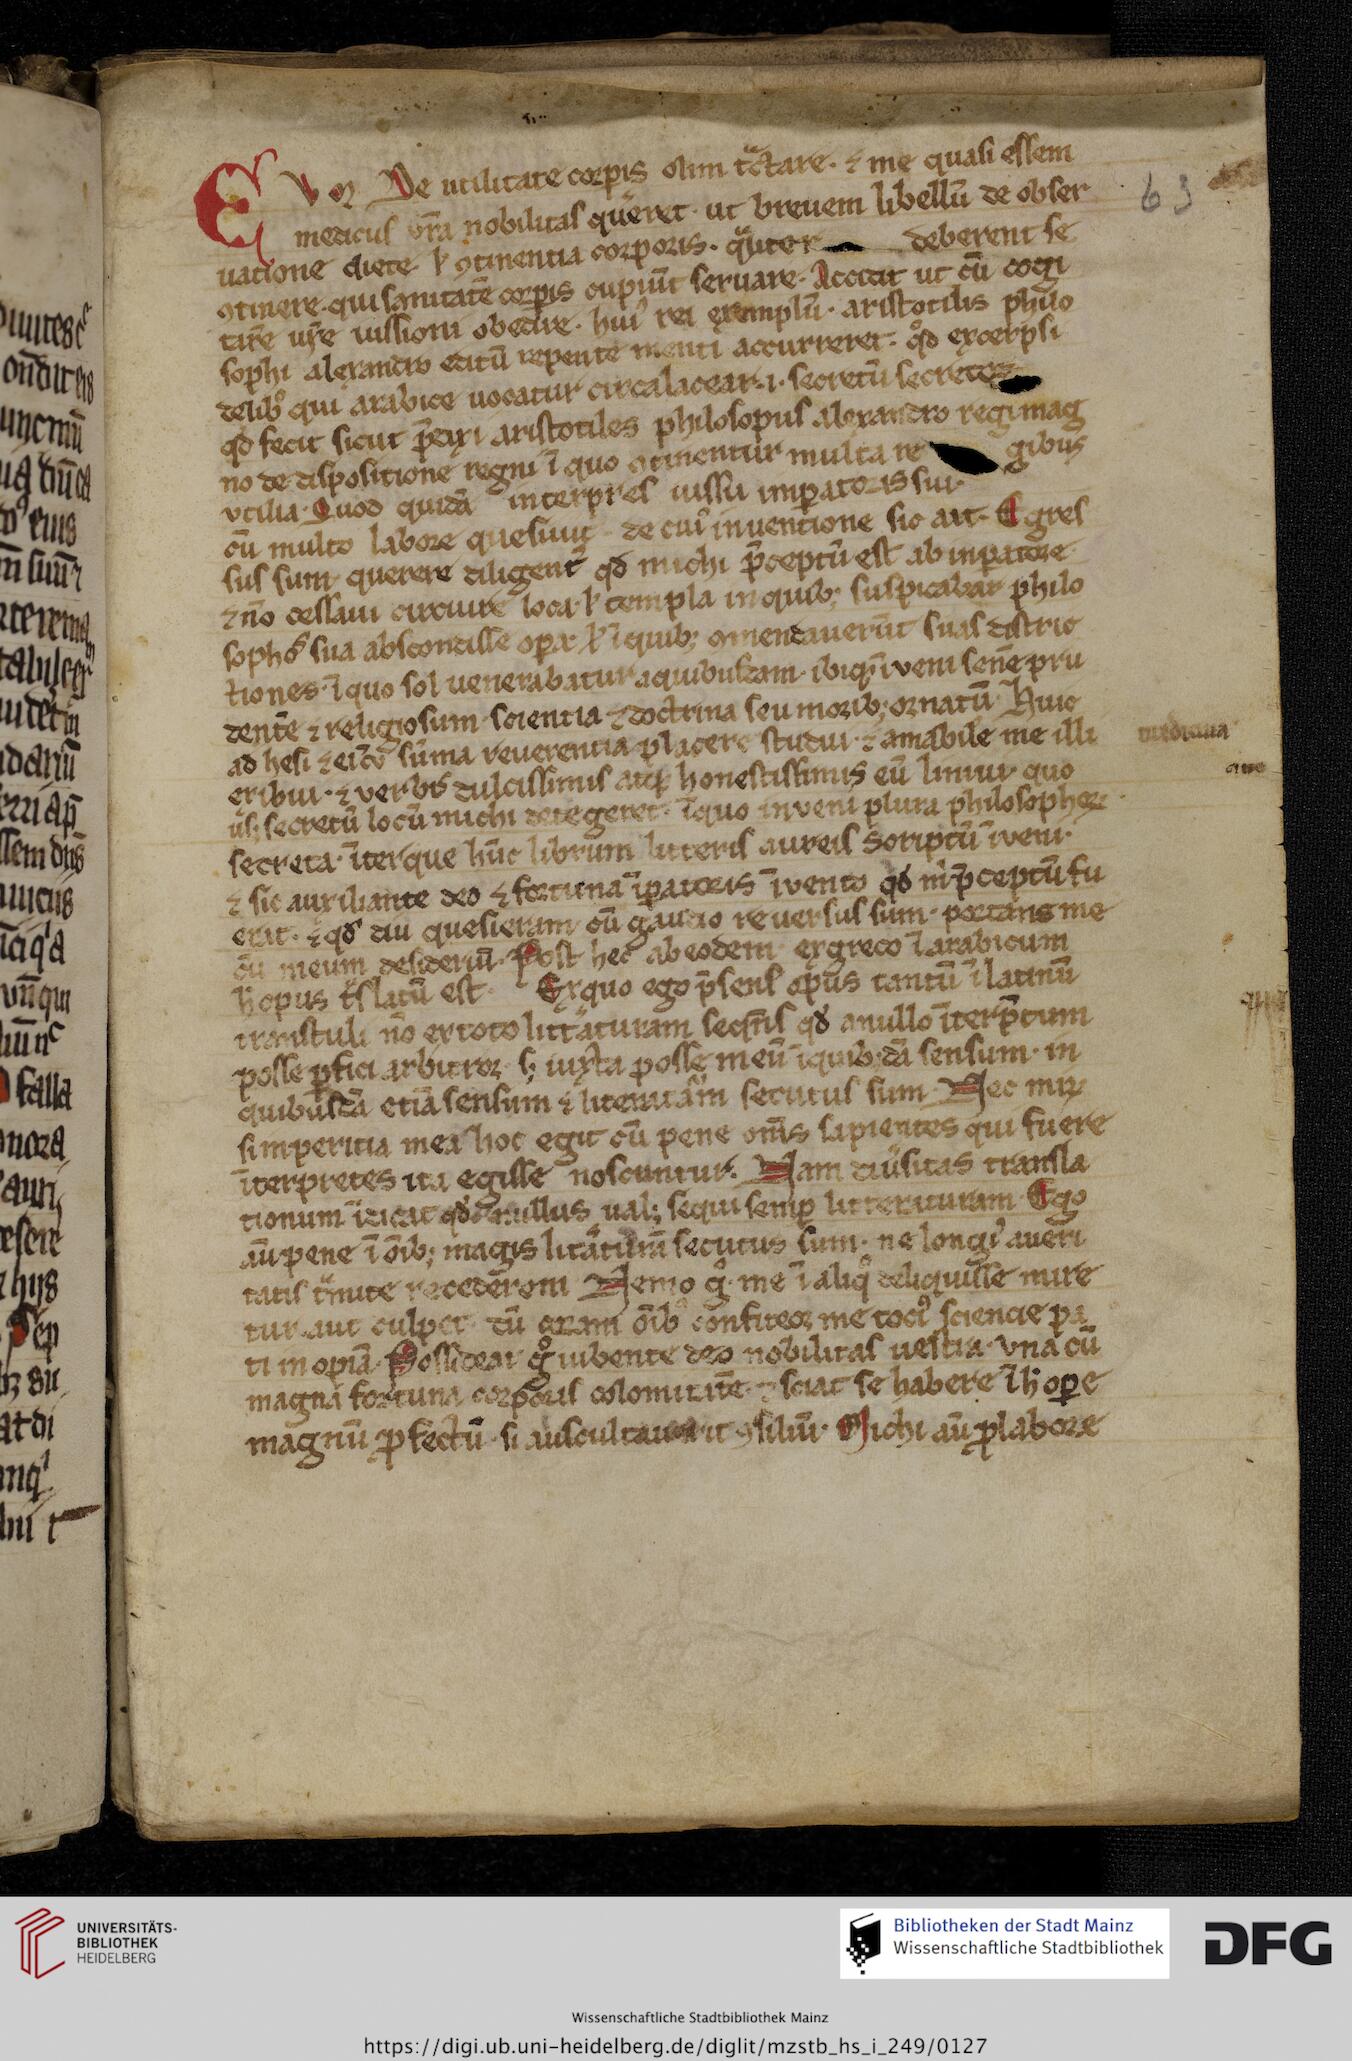 E V m De utilitate corp̄is olim tͣctare · ⁊ me quasi essem
medicus vr̄a nobilitas quereret · ut breuem libellū de obser
uatione diete ⱡ ꝯtinentia corporis · qͣliter deberent se
ꝯtinere · qui sanitatē corp̄is cupiūt seruare · Accidit ut cū cogi
iussioni obedire · huiꝰ rei exemplū · aristotilis phīlo
sophi alexandro editū repente menti accurreret · qͦd excerpsi
delibꝰ qui arabice uocatur circalacear · i · secretū secretoꝝ
qd̄ fecit sicut p̄dixi aristotiles philosopus alexandro regi mag
no de dispositione regni ī quo ꝯtinentur multa re gibus
vtilia · Quod quidā interpres iussu imꝑatoris sui ·
cū multo labore quesiuit · de cuiꝰ inuentione sic ait · Egres
sus sum querere diligent̄ qd̄ michi p̄ceptū est ab inꝑatore
⁊ nō cessaui circuire loca ⱡ templa in quibꝫ suspicabar philo
sophōs sua abscondisse oꝑa · ⱡ ī quibꝫ ꝯmendauerūt suas distric
tiones · ī quo sol uenerabatur aquibusdam · ibiqꝫ īueni senē pru
dentē ⁊ religiosum scientia ⁊ doctrina seu moribꝫ ornatū · Huic
ad hesi ⁊ ei cū sūma reuerentia placere studui · ⁊ amabile me illi
exibui · ⁊ verbis dulcissimis atqꝫ honestissimis eū liniui quo
secretū locū michi detegeret · ī quo inueni plura philosophoꝝ
secreta · īterque hūc librum litteris aureis scriptū īueni ·
⁊ sic auxiliante deo ⁊ fortuna īꝑatoris īuento qd̄ m̄ p̄ceptū fu
erat · ⁊ qd̄ diu quesieram cū gaudio reuersus sum · portans me
cū meum desideriū · Post hec ab eodem ex greco ī arabicum
h̄ opus tͣslatū est · Ex quo ego p̄sens opus tantū ī latinū
transtuli nō ex toto litt̄aturam seqn̄s qd̄ anullo īterp̄tum
posse ꝑfici arbitror · sꝫ iuxta posse meū ī quibꝫdā sensum · in
quibusdā etiā sensum ⁊ literatͣm secutus sum · Nec miꝝ
si imperitia mea hoc egit cū pene om̄s sapientes qui fuere
īterpretes ita egisse noscuntur · Nam diūsitas transla
tionum īdicat qd̄ nullus ualꝫ sequi semꝑ litteraturam · Ego
aū pene ī ōibꝫ magis litͣturā secutus sum · ne longiꝰ aueri
tatis tͣmite recederem · Nemo gͦ me ī aliqͦ deliquisse mire
tur aut culpet · cū coram ōibꝰ confiteor me tociꝰ sciencie pa
ti in opiā · Possideat gͦ iubente deo nobilitas uestra · vna cū
magna fortuna corporis colomitatē · ⁊ sciat se habere ī h̄ oꝑe
magnū ꝓfectū · si auscultauerit ꝯsiliū · Michi aū ꝓ labore
medicina
63
UNIVERSITÄTS-
BIBLIOTHEK
HEIDELBERG
Bibliotheken der Stadt Mainz
Wissenschaftliche Stadtbibliothek
DFG
Wissenschaftliche Stadtbibliothek Mainz
https://digi.ub.uni-heidelberg.de/diglit/mzstb_hs_i_249/0127